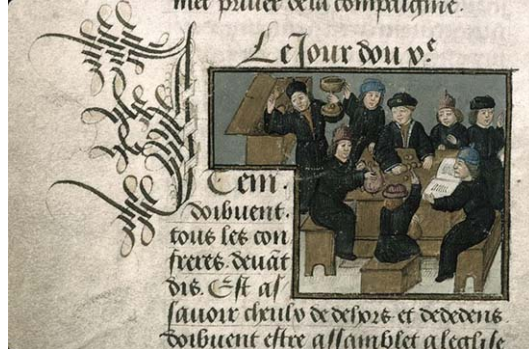 mer priuee dela compaignie.
Le Jour dou v.e
Item.
doibuent.
tous les con
freres. deuāt
dis. Est as
sauoir cheulx de dehors et dededens
doibuent estre assamblet a leglise